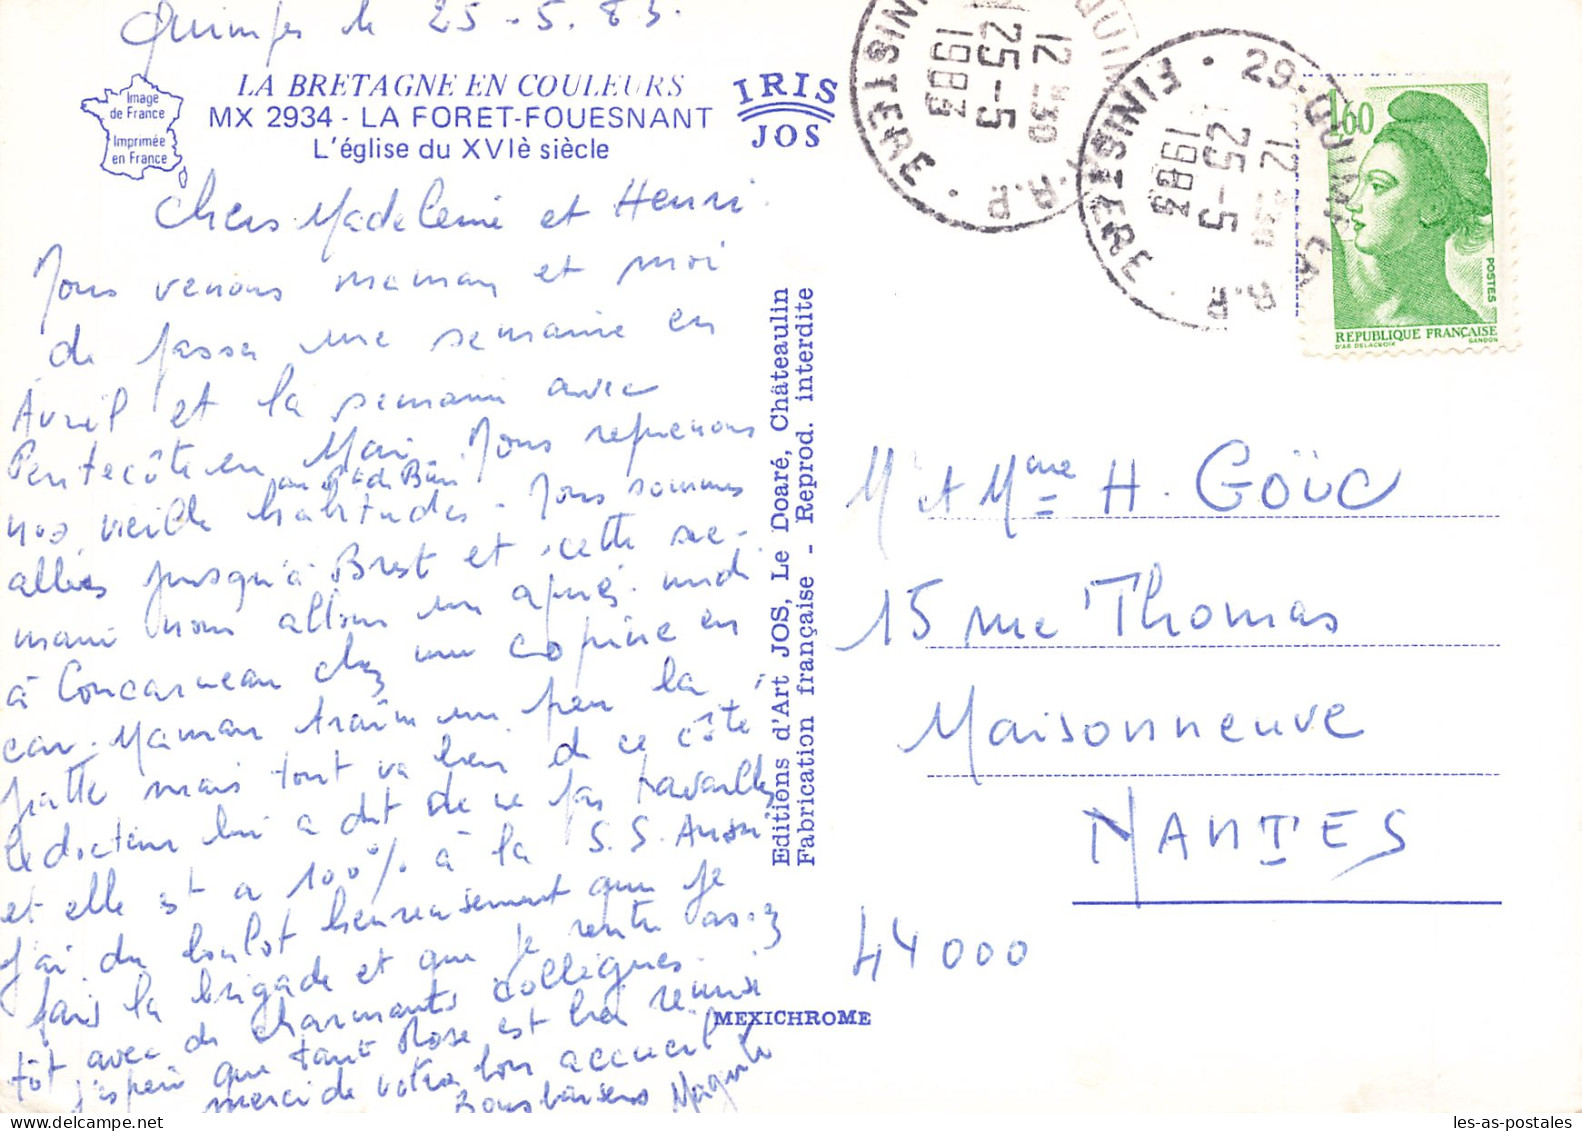 Quimper le 25-5.83.
LA BRETAGNE EN COULEURS
MX 2934 - LA FORET-FOUESNANT
L'église du XVIè siècle
Image
de France
Imprimée
en France
IRIS
JOS
Chers Madeleine et Henri.
Nous venons maman et moi
de passer une semaine en
Avril et la semaine avec
Pentecôte en Mai. Nous reprenons
nos vieille habitudes - Nous sommes
allées jusqu'à Brest et cette se-
maine nous allons un après-midi
à Concarneau chez une copine en
car. Maman traîne un peu la
patte mais tout va bien de ce côté
le docteur lui a dit de ne pas travailler
et elle est a 100% à la S.S. Aussi
j'ai du boulot heureusement que je
fais la brigade et que je rentre assez
tôt avec de charmants collègues.
j'espère que tante Rose est bien remise
merci de votre bon accueil
Bons baisers
Editions d'Art JOS, Le Doaré, Châteaulin
Fabrication française - Reprod. interdite
MEXICHROME
29-QUIMPER R.P.
12 H30
25-5
1983
FINISTERE
29-QUIMPER R.P.
12 H30
25-5
1983
FINISTERE
1,60
POSTES
REPUBLIQUE FRANÇAISE
D'AP. DELACROIX GANDON
Mr et Mme H. GOÜC
15 rue Thomas
Maisonneuve
NANTES
44000
les-as-postales